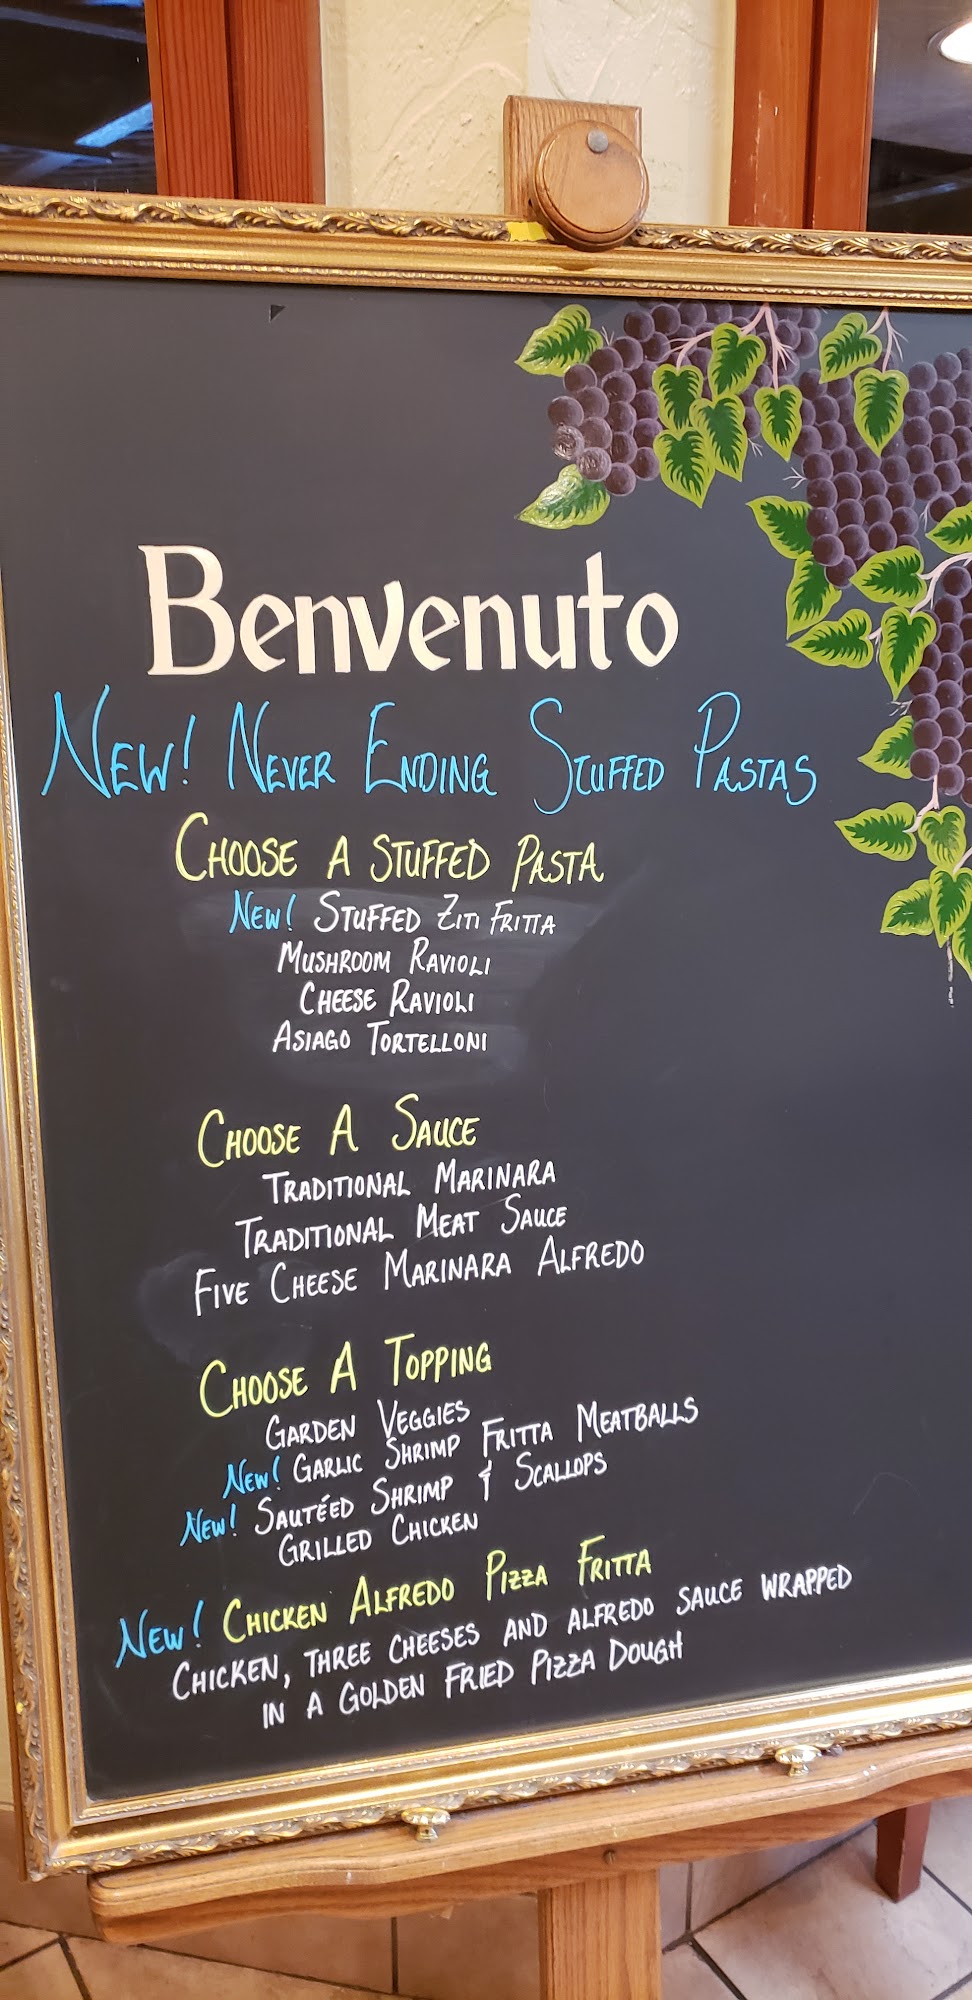 Benvenuto
NEW! NEVER ENDING STUFFED PASTAS
CHOOSE A STUFFED PASTA
NEW! STUFFED ZITI FRITTA
MUSHROOM RAVIOLI
CHEESE RAVIOLI
ASIAGO TORTELLONI
CHOOSE A SAUCE
TRADITIONAL MARINARA
TRADITIONAL MEAT SAUCE
FIVE CHEESE MARINARA ALFREDO
CHOOSE A TOPPING
GARDEN VEGGIES
NEW! GARLIC SHRIMP FRITTA MEATBALLS
NEW! SAUTÉED SHRIMP & SCALLOPS
GRILLED CHICKEN
NEW! CHICKEN ALFREDO PIZZA FRITTA
CHICKEN, THREE CHEESES AND ALFREDO SAUCE WRAPPED
IN A GOLDEN FRIED PIZZA DOUGH